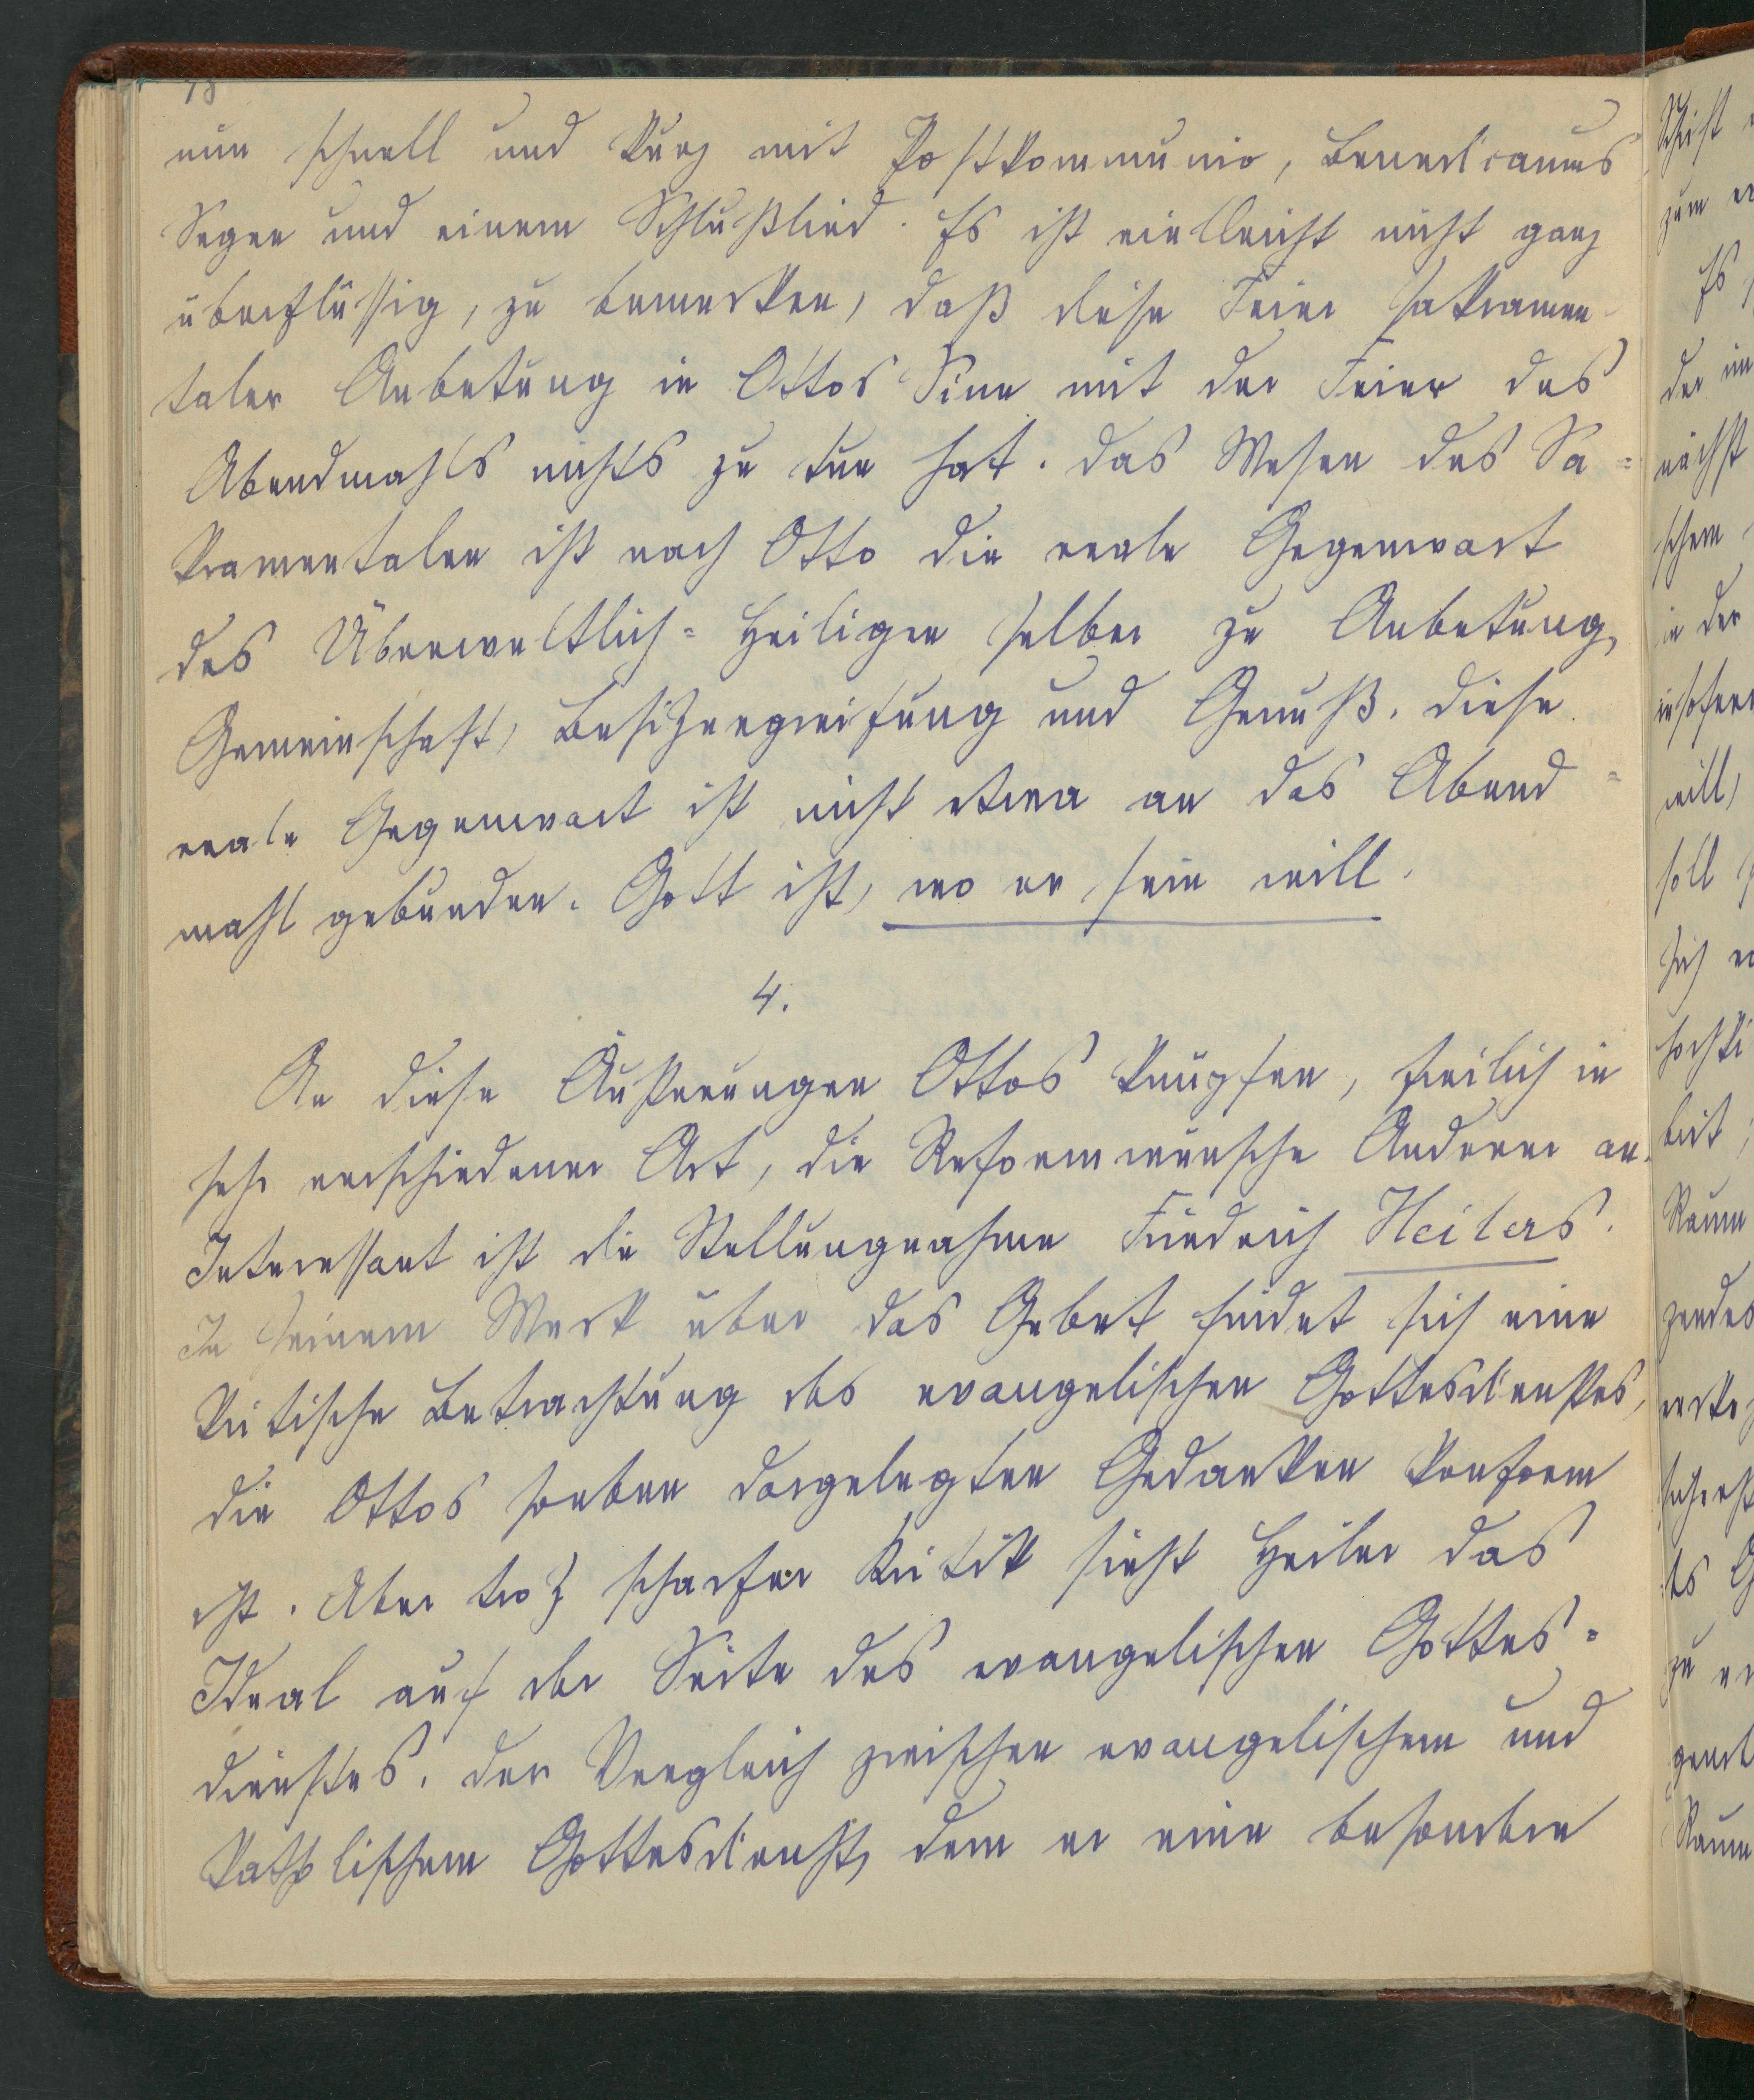 nun schnell und kurz mit Postkommunio, Benedicamus
Segen und einem Schlußlied. Es ist vielleicht nicht ganz
überflüssig, zu bemerken, daß diese Feier sakramen-
taler Anbetung in Ottos Sinn mit der Feier des
Abendmahls nichts zu tun hat. Das Wesen des Sa=
kramentalen ist nach Otto die reale Gegenwart
des Überweltlich=Heiligen selber zu Anbetung,
Gemeinschaft, Besitzergreifung und Genuß. Diese
reale Gegenwart ist nicht etwa an das Abend=
mahl gebunden. Gott ist, wo er sein will.
4.
An diese Äußerungen Ottos knüpfen, freilich in
sehr verschiedener Art, die Reformwünsche Anderer an.
Interessant ist die Stellungnahme Friedrich Heilers.
In seinem Werk über das Gebet findet sich eine
kritische Betrachtung des evangelischen Gottesdienstes,
die Ottos soeben dargelegten Gedanken konform
ist. Aber trotz scharfer Kritik sieht Heiler das
Ideal auf der Seite des evangelischen Gottes=
dienstes. Der Vergleich zwischen evangelischem und
katholischem Gottesdienst, dem er eine besondere
Schrift
zum
Es
der im
nächst
schem
in der
insofern
will,
soll
sich
hochki
keit,
Raum
des G
zu
Raum